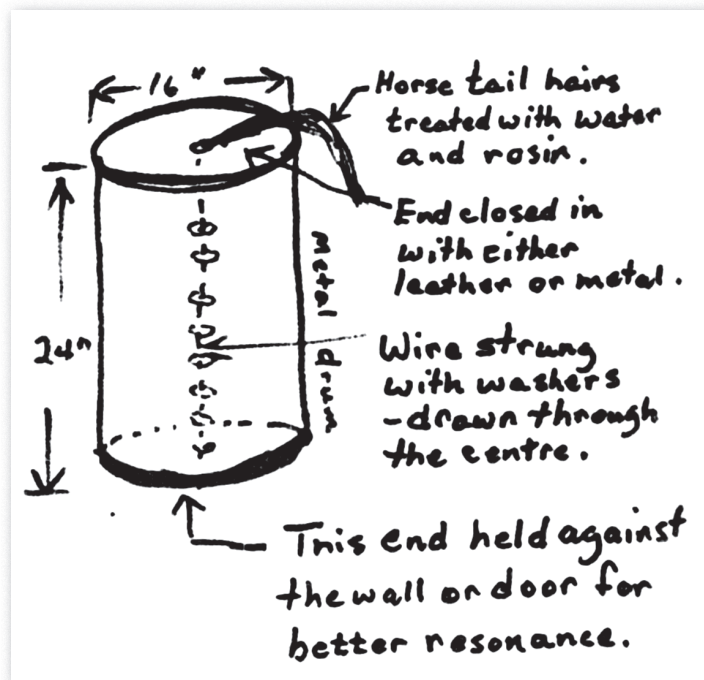 16"
Horse tail hairs
treated with water
and rosin.
End closed in
with either
leather or metal.
24"
metal drum
Wire strung
with washers
-drawn through
the centre.
This end held against
the wall or door for
better resonance.